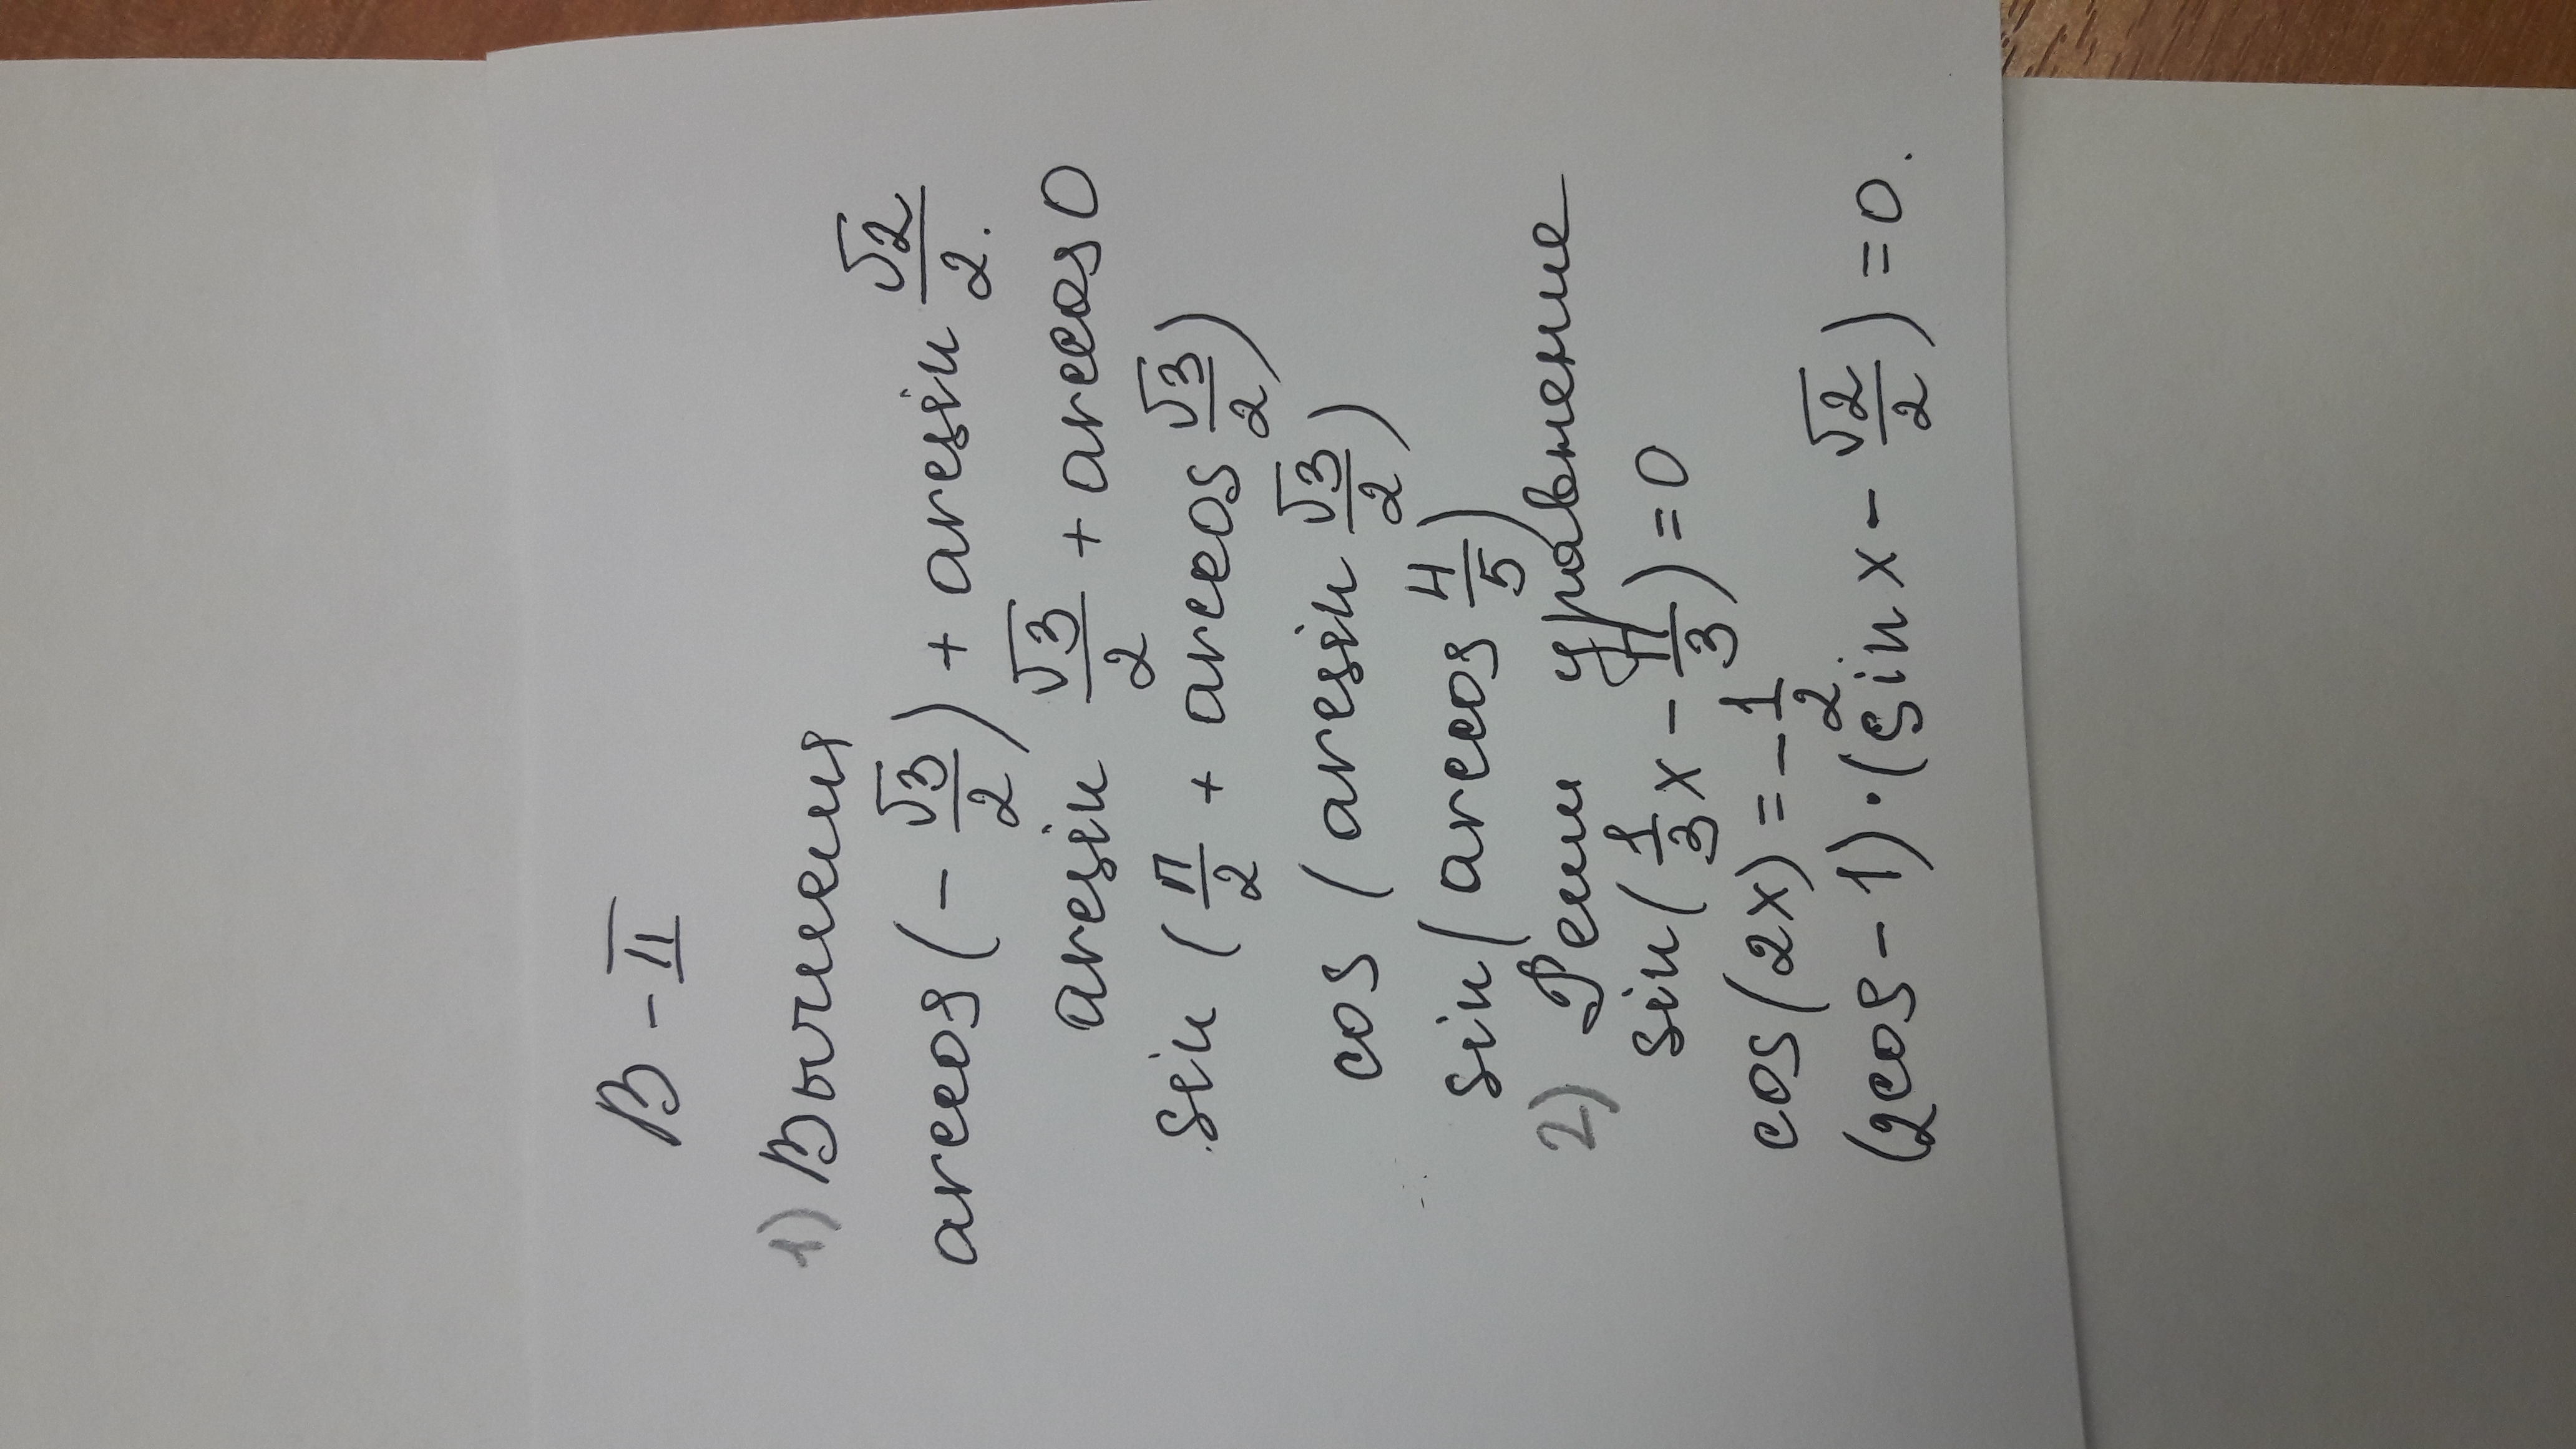 В - II
1) Вычисли
arccos(-√3/2) + arcsin √2/2.
arcsin √3/2 + arccos 0
sin (π/2 + arccos √3/2)
cos (arcsin √3/2)
sin (arccos 4/5)
2) Реши уравнение
sin(1/3 x - π/3) = 0
cos(2x) = -1/2
(2cos - 1)·(sin x - √2/2) = 0.